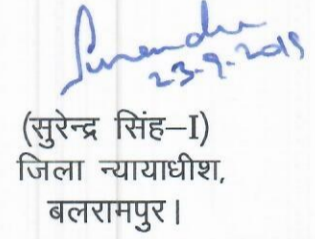 Surendra
23-9-2019
(सुरेन्द्र सिंह–I)
जिला न्यायाधीश,
बलरामपुर।